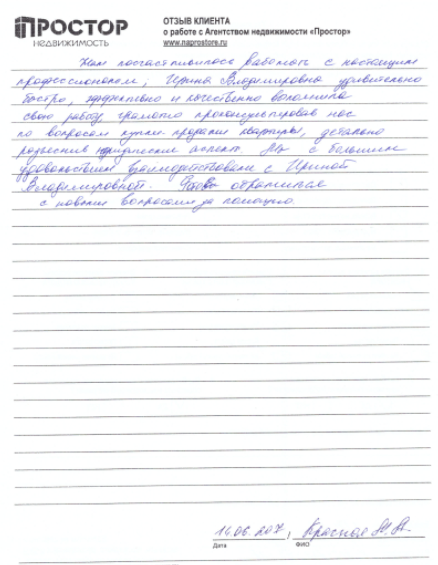 ПРОСТОР
НЕДВИЖИМОСТЬ
ОТЗЫВ КЛИЕНТА
о работе с Агентством недвижимости «Простор»
www.naprostore.ru
Нам посчастливилось работать с настоящим
профессионалом, Ирина Владимировна удивительно
быстро, эффективно и качественно выполнила
свою работу, грамотно проконсультировав нас
по вопросам купли-продажи квартиры, детально
разъяснив юридические аспекты. Мы с большим
удовольствием взаимодействовали с Ириной
Владимировной. обратимся
с новыми вопросами за помощью.
16.06.2017, Красная М.А.
Дата ФИО